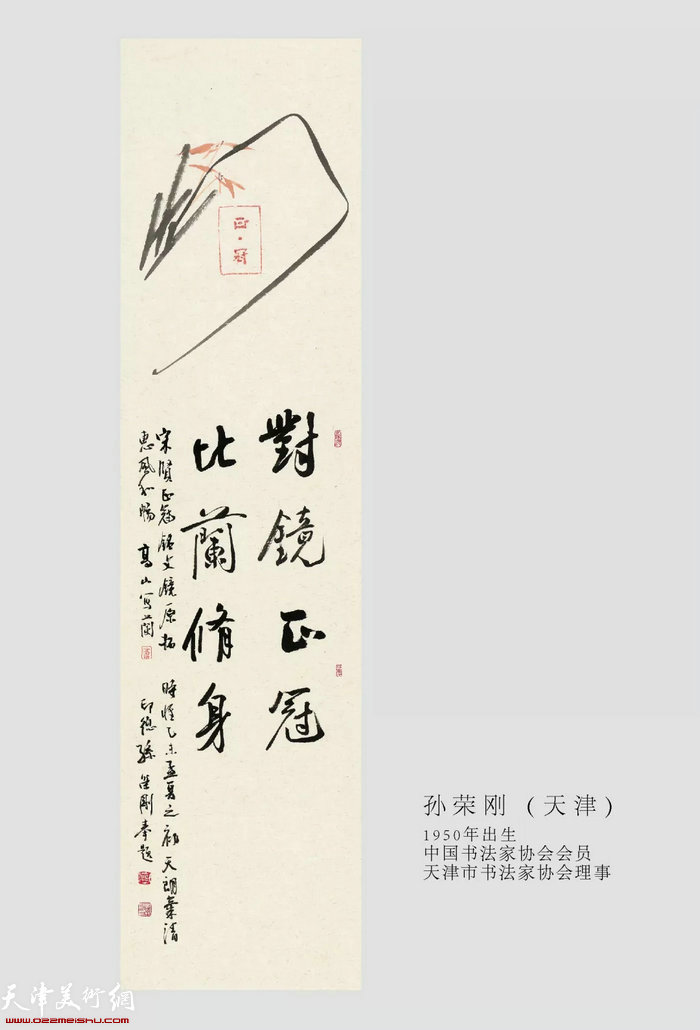 正·冠
對鏡正冠
比蘭脩身
宋賢正冠銘文鏡原拓
時惟乙未孟夏之初天朗氣清
惠風和暢
高山寫蘭
孫榮剛奉題
孙荣刚（天津）
1950年出生
中国书法家协会会员
天津市书法家协会理事
天津美術網
www.022meishu.com